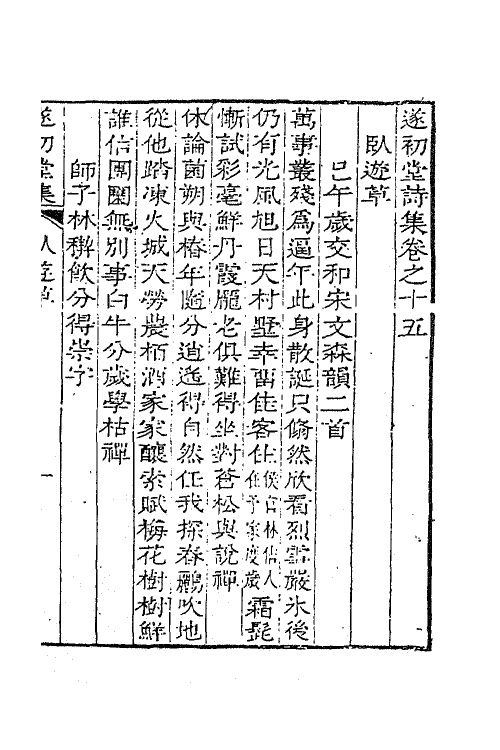 遂初堂詩集卷之十五
臥遊草
己午歲交和宋文森韻二首
萬事叢殘為逼年此身散誕只翛然欣看烈雪嚴氷後
仍有光風旭日天村墅幸留佳客住侯官林佶人在予家度歲霜髭
慚試彩毫鮮丹霞龐老俱難得坐對蒼松與說禪
休論菌朔與椿年隨分逍遙得自然任我探春飈吹地
從他踏凍火城天勞農栢酒家家釀索賦梅花樹樹鮮
誰信團圞無別事白牛分歲學枯禪
師子林稧飲分得崇字
遂初堂集
臥遊草
一